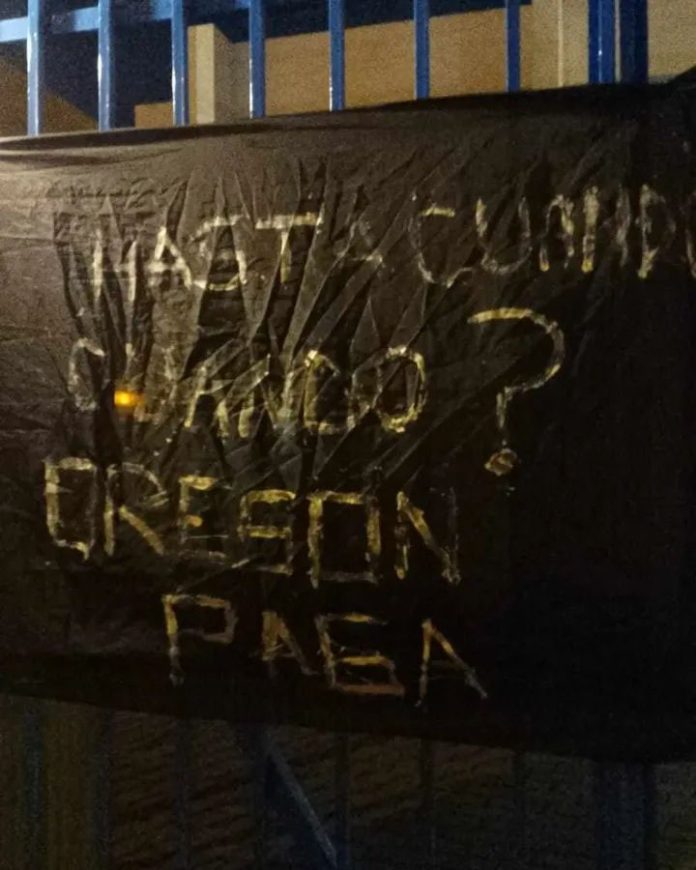 HASTA CUANDO
CUANDO ?
OREGON
PAGA